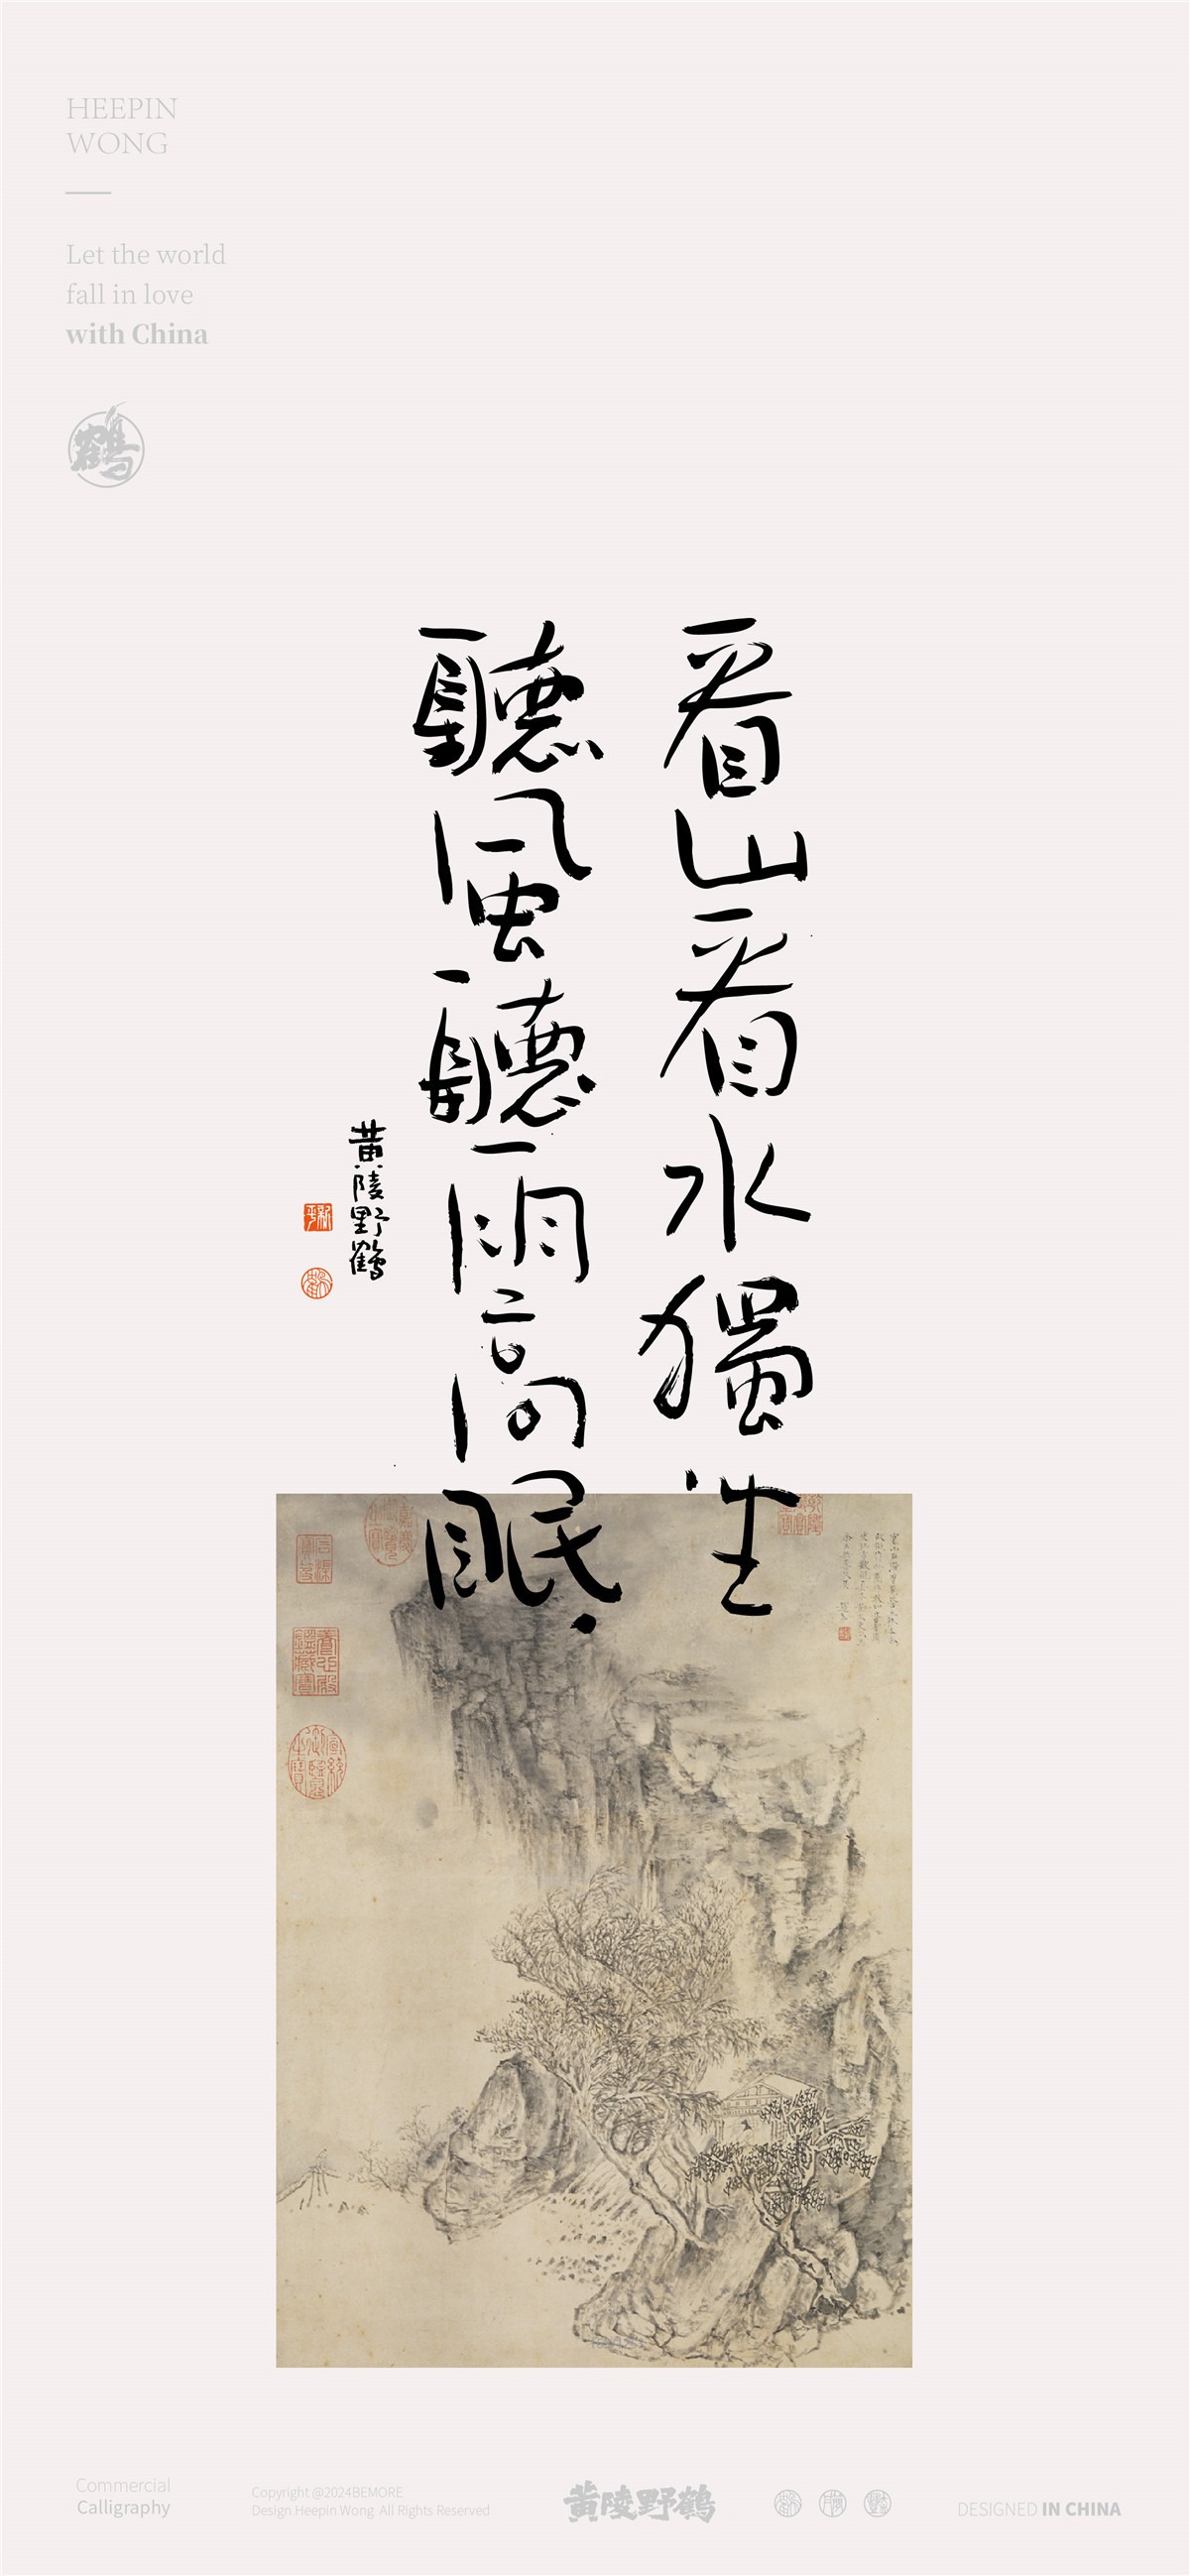 HEEPIN
WONG
Let the world
fall in love
with China
鶴
看山看水獨坐
聽風聽雨高眠
黄陵野鶴
Commercial
Calligraphy
Copyright @2024BEMORE
Design Heepin Wong All Rights Reserved
黄陵野鶴
DESIGNED IN CHINA